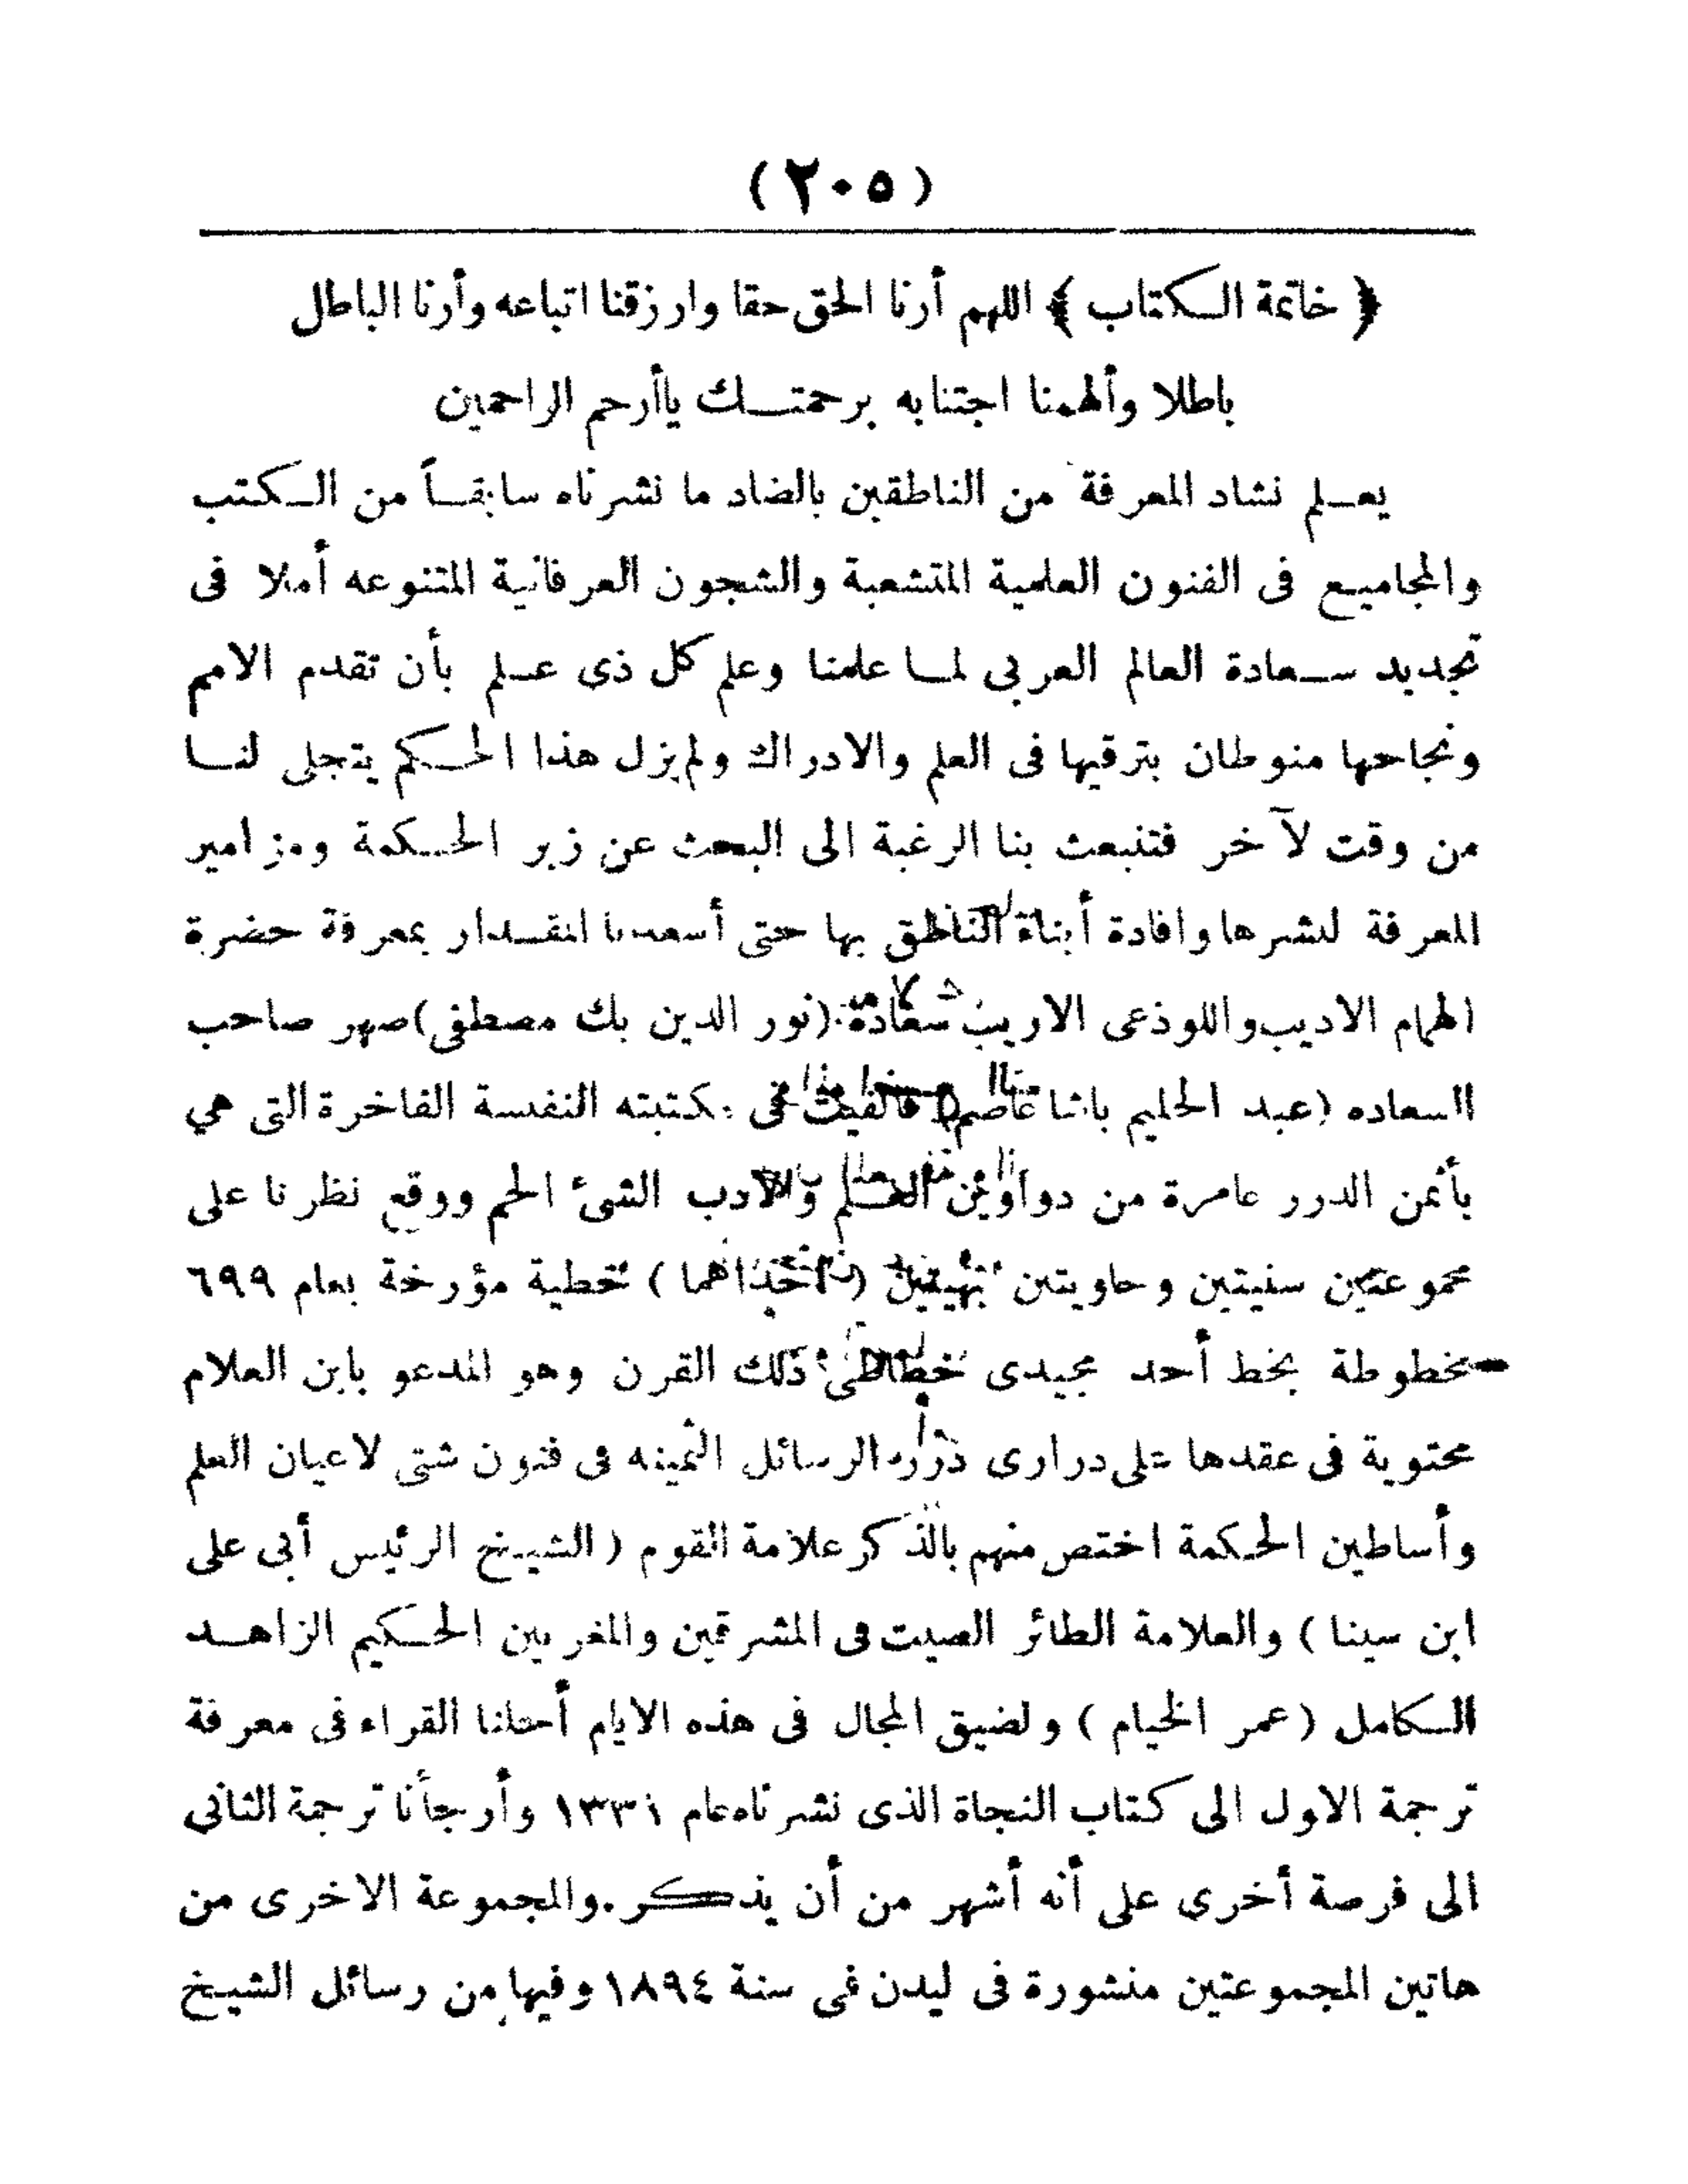 (٢٠٥)
﴿ خاتمة الكتاب ﴾ اللهم أرنا الحق حقا وارزقنا اتباعه وأرنا الباطل
باطلا وألهمنا اجتنابه برحمتك ياأرحم الراحمين
يعلم نشاد المعرفة من الناطقين بالضاد ما نشرناه سابقاً من الكتب
والمجاميع فى الفنون العلمية المتشعبة والشجون العرفانية المتنوعه أملا فى
تجديد سعادة العالم العربى لما علمنا وعلم كل ذى علم بأن تقدم الامم
ونجاحها منوطان بترقيها فى العلم والادراك ولم يزل هذا الحكم يتجلى لنا
من وقت لآخر فتنبعث بنا الرغبة الى البحث عن زبر الحكمة ومزامير
المعرفة لنشرها وافادة أبناء الناطق بها حتى أسعدنا المقدار بمعرفة حضرة
الهمام الاديب واللوذعى الاريب سعادة (نور الدين بك مصطفى) صهر صاحب
السعاده (عبد الحليم باشا عاصم) فألفيت فى مكتبته النفيسة الفاخرة التى هي
بأثمن الدرر عامرة من دواوين العلم والادب الشئ الجم ووقع نظرنا على
مجموعتين سنيتين وحاويتين بهيتين (احداهما) خطية مؤرخة بعام ٦٩٩
مخطوطة بخط أحد مجيدى خطاطى ذلك القرن وهو المدعو بابن العلام
محتوية فى عقدها على درارى درر الرسائل الثمينه فى فنون شتى لاعيان العلم
وأساطين الحكمة اختص منهم بالذكر علامة القوم (الشيخ الرئيس أبى على
ابن سينا) والعلامة الطائر الصيت فى المشرقين والمغربين الحكيم الزاهد
الكامل (عمر الخيام) ولضيق المجال فى هذه الايام أحلنا القراء فى معرفة
ترجمة الاول الى كتاب النجاة الذى نشرناه عام ١٣٣١ وأرجأنا ترجمة الثانى
الى فرصة أخرى على أنه أشهر من أن يذكر. والمجموعة الاخرى من
هاتين المجموعتين منشورة فى ليدن فى سنة ١٨٩٤ وفيها من رسائل الشيخ